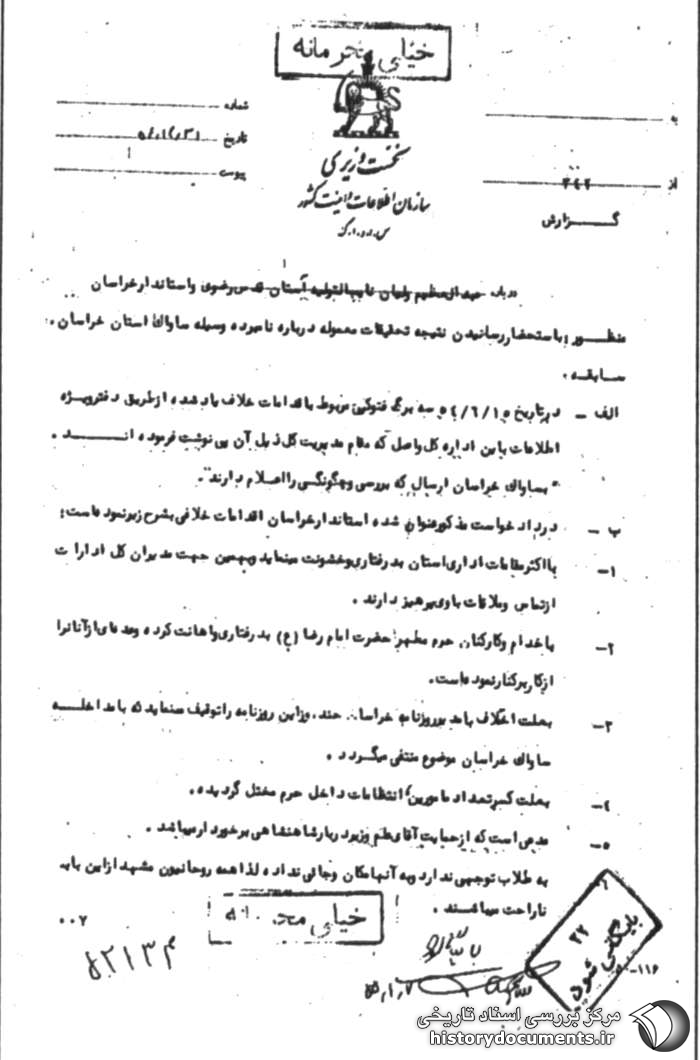 خیلی محرمانه
به
شماره
تاریخ
پیوست
از ۳۴۲
نخست وزیری
سازمان اطلاعات و امنیت کشور
س.ا.و.ا.ک
گـــزارش
درباره عبدالعظیم ولیان نایب‌التولیه آستان قدس رضوی و استاندار خراسان
منظـــور: باستحضار رسانیدن نتیجه تحقیقات معموله درباره نامبرده وسیله ساواک استان خراسان.
سـابقـه.
الف ـ در تاریخ سه برگ فتوکپی مربوط باقدامات خلاف یاد شده از طریق دفتر ویژه
اطلاعات باین اداره کل واصل که مقام مدیریت کل ذیل آن پی نوشت فرموده انـــد.
"بساواک خراسان ارسال که بررسی و چگونگی را اعلام دارند".
ب ـ در دادخواست مذکور عنوان شده استاندار خراسان اقدامات خلافی بشرح زیر نموده است:
۱ـ با اکثر مقامات اداری استان بدرفتاری و خشونت مینماید و بهمین جهت مدیران کل ادارات
از تماس و ملاقات با وی پرهیز دارند.
۲ـ با خدام و کارکنان حرم مطهر حضرت امام رضا (ع) بدرفتاری و اهانت کرده و عده‌ای از آنانرا
از کار برکنار نموده است.
۳ـ بعلت اختلاف با مدیر روزنامه خراسان چند روز این روزنامه را توقیف مینماید که با مداخلـــه
ساواک خراسان موضوع منتفی میگـردد.
۴ـ بعلت کسر تعداد مامورین انتظامات داخل حرم مختل گردیده.
۵ـ مدعی است که از حمایت آقای علم وزیر دربار شاهنشاهی برخوردار میباشد.
۶ به طلاب توجهی ندارد و به آنها مکان و جائی نداده لذا همه روحانیون مشهد از این بابت
ناراحت میباشنـد.
خیلی محرمانه
۰۰۷
بایگانی شود
۱۱۶-
مرکز بررسی اسناد تاریخی
historydocuments.ir